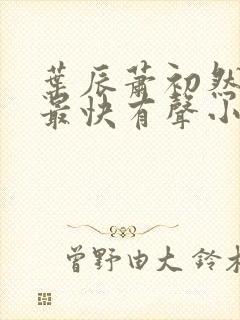 葉辰蕭初然
最快有聲小
曾野由大 鈴木